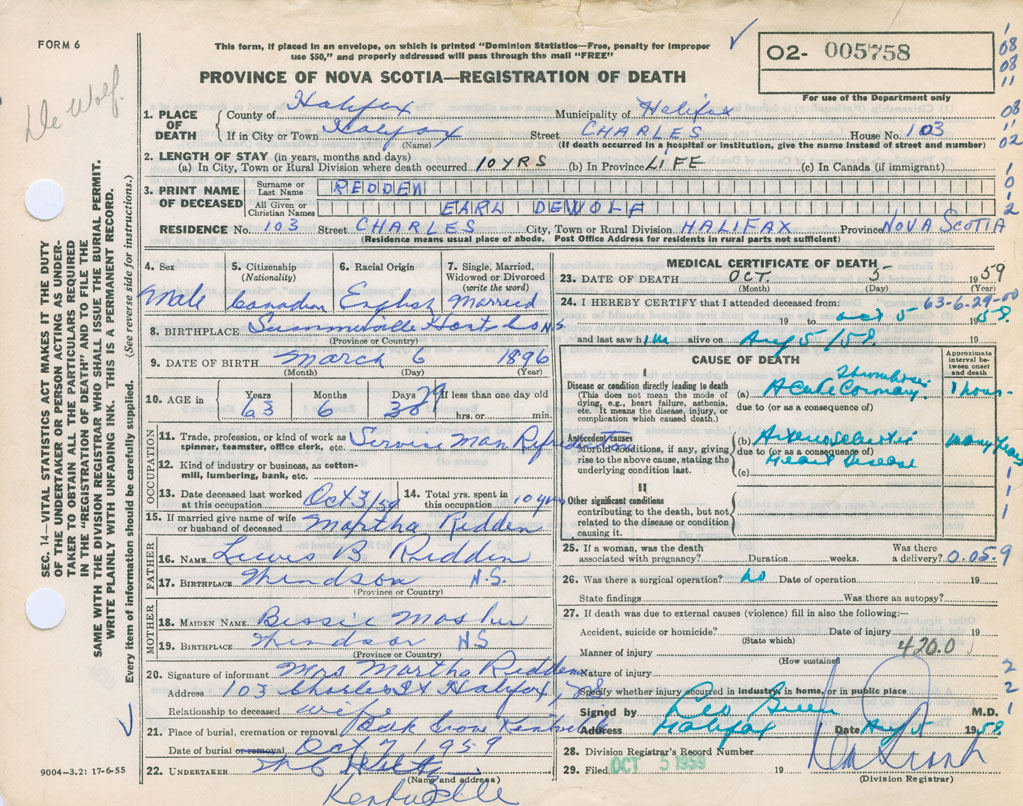 FORM 6
This form, if placed in an envelope, on which is printed "Dominion Statistics—Free, penalty for improper
use $50," and properly addressed will pass through the mail "FREE"
PROVINCE OF NOVA SCOTIA—REGISTRATION OF DEATH
02- 005758
For use of the Department only
De Wolf.
1. PLACE OF DEATH
County of Halifax Municipality of Halifax
If in City or Town Halifax Street CHARLES House No. 103
(Name) (If death occurred in a hospital or institution, give the name instead of street and number)
2. LENGTH OF STAY (in years, months and days)
(a) In City, Town or Rural Division where death occurred 10 YRS (b) In Province LIFE (c) In Canada (if immigrant)
3. PRINT NAME OF DECEASED
Surname or Last Name REDDEN
All Given or Christian Names EARL DEWOLF
RESIDENCE No. 103 Street CHARLES City, Town or Rural Division HALIFAX Province NOVA SCOTIA
(Residence means usual place of abode. Post Office Address for residents in rural parts not sufficient)
4. Sex Male
5. Citizenship (Nationality) Canadian
6. Racial Origin English
7. Single, Married, Widowed or Divorced (write the word) Married
8. BIRTHPLACE Summerville Hants Co N.S.
(Province or Country)
9. DATE OF BIRTH March 6 1896
(Month) (Day) (Year)
10. AGE in Years 63 Months 6 Days 29 If less than one day old
hrs. or min.
OCCUPATION
11. Trade, profession, or kind of work as spinner, teamster, office clerk, etc. Service Man Refrigeration
12. Kind of industry or business, as cotton-mill, lumbering, bank, etc.
13. Date deceased last worked at this occupation Oct 3/59
14. Total yrs. spent in this occupation 10 yrs
15. If married give name of wife or husband of deceased Martha Redden
FATHER
16. NAME Lewis B Redden
17. BIRTHPLACE Windson N.S.
(Province or Country)
MOTHER
18. MAIDEN NAME Bessie Mosher
19. BIRTHPLACE Windsor N.S
(Province or Country)
20. Signature of informant Mrs Martha Redden
Address 103 Charles St Halifax, N.S
Relationship to deceased wife
21. Place of burial, cremation or removal Oak Grove Kentville
Date of burial or removal Oct 7 1959
22. UNDERTAKER
(Name and address)
Kentville
MEDICAL CERTIFICATE OF DEATH
23. DATE OF DEATH OCT. 5- 1959
(Month) (Day) (Year)
24. I HEREBY CERTIFY that I attended deceased from: 63-6-29-00
19 to Oct 5 1958.
and last saw him alive on Aug 5/58. 19
CAUSE OF DEATH
Approximate interval between onset and death
I
Disease or condition directly leading to death
(This does not mean the mode of dying, e.g., heart failure, asthenia, etc. It means the disease, injury, or complication which caused death.)
(a) Acute Coronary Thrombosis 1 hour-
due to (or as a consequence of)
Antecedent causes
Morbid conditions, if any, giving rise to the above cause, stating the underlying condition last.
(b) Arteriosclerotic many years
due to (or as a consequence of)
Heart Disease
(c)
II
Other significant conditions
contributing to the death, but not related to the disease or condition causing it.
25. If a woman, was the death associated with pregnancy? Duration weeks. Was there a delivery? 0.05.9
26. Was there a surgical operation? No Date of operation 19
State findings Was there an autopsy?
27. If death was due to external causes (violence) fill in also the following:—
Accident, suicide or homicide? Date of injury 19
(State which)
Manner of injury 420.0
(How sustained)
Nature of injury
Specify whether injury occurred in industry, in home, or in public place
Signed by Leo Green M.D.
Address Halifax Date Aug 5 1958.
28. Division Registrar's Record Number
29. Filed OCT 5 1959 19
(Division Registrar)
SEC. 14—VITAL STATISTICS ACT MAKES IT THE DUTY
OF THE UNDERTAKER OR PERSON ACTING AS UNDER-
TAKER TO OBTAIN ALL THE PARTICULARS REQUIRED
IN THE "REGISTRATION OF DEATH" AND TO FILE THE
SAME WITH THE DIVISION REGISTRAR WHO SHALL ISSUE THE BURIAL PERMIT.
WRITE PLAINLY WITH UNFADING INK. THIS IS A PERMANENT RECORD.
Every item of information should be carefully supplied. (See reverse side for instructions.)
9004-3.2: 17-6-55
1
08
08
11
08
11
02
1
0
1
2
1
1
1
2
2
1